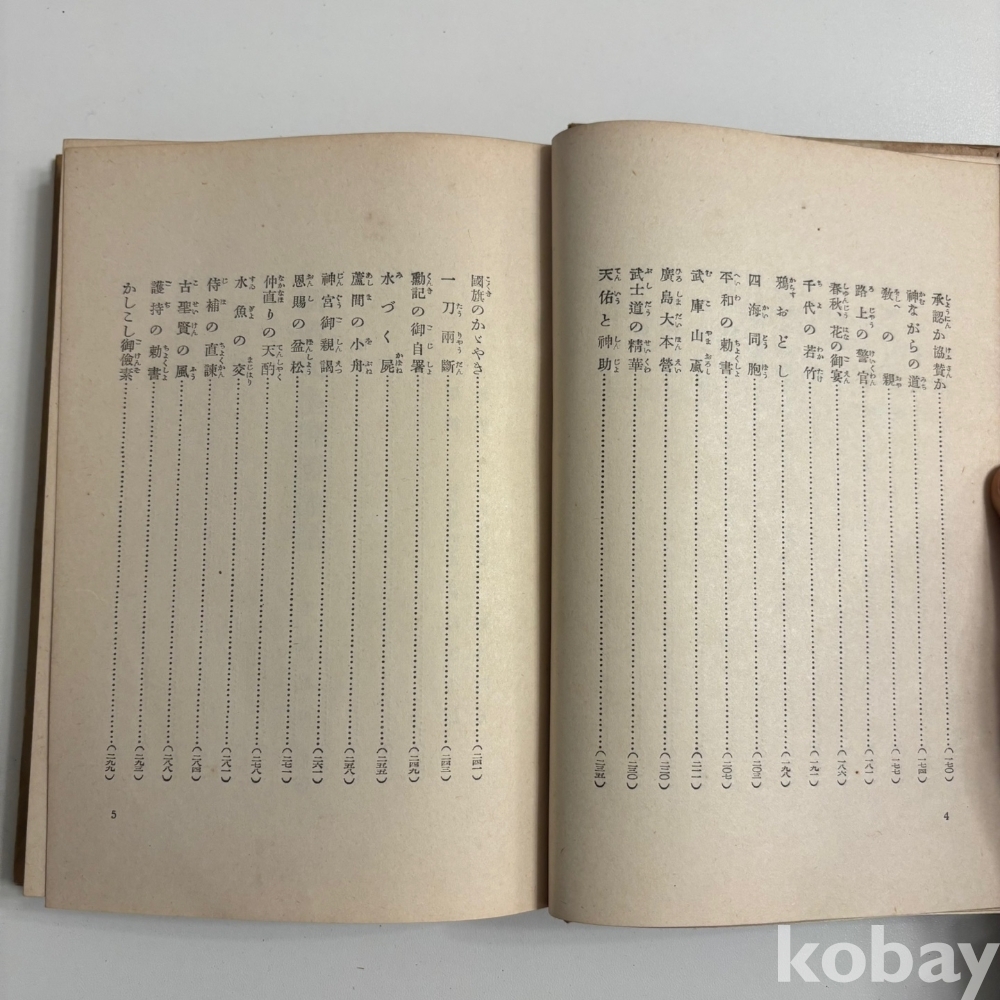 承認か協賛か……（一七〇）
神ながらの道……（一七四）
敎の親……（一七七）
路上の警官……（一八一）
春秋、花の御宴……（一八六）
千代の若竹……（一九一）
鴉おどし……（一九八）
四海同胞……（二〇三）
平和の勅書……（二〇七）
武庫山颪……（二一一）
廣島大本營……（二二〇）
武士道の精華……（二三〇）
天佑と神助……（二三五）
4
國旗のかゞやき……（二四一）
一刀兩斷……（二四三）
勳記の御自署……（二四九）
水づく屍……（二五五）
蘆間の小舟……（二五八）
神宮御親謁……（二六一）
恩賜の盆松……（二七一）
仲直りの天酌……（二七八）
水魚の交……（二八一）
侍補の直諫……（二八四）
古聖賢の風……（二八八）
護持の勅書……（二九三）
かしこし御儉素……（二九九）
5
kobay